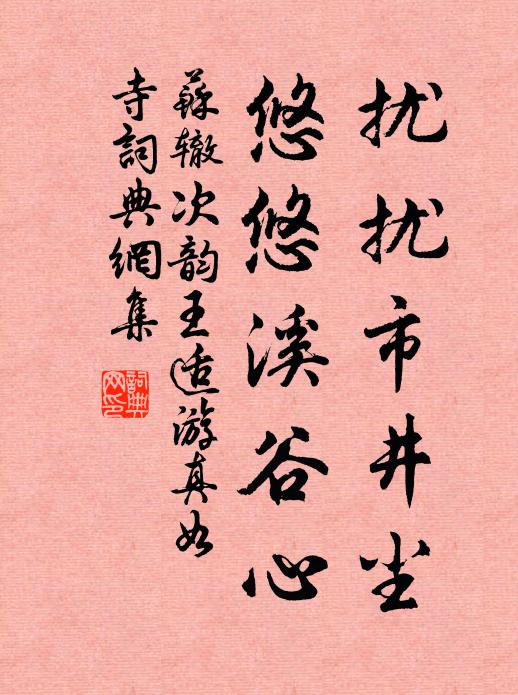 扰扰市井尘
悠悠溪谷心
蘇辙次韵王适游真如
寺詞典網集
詞典
网印